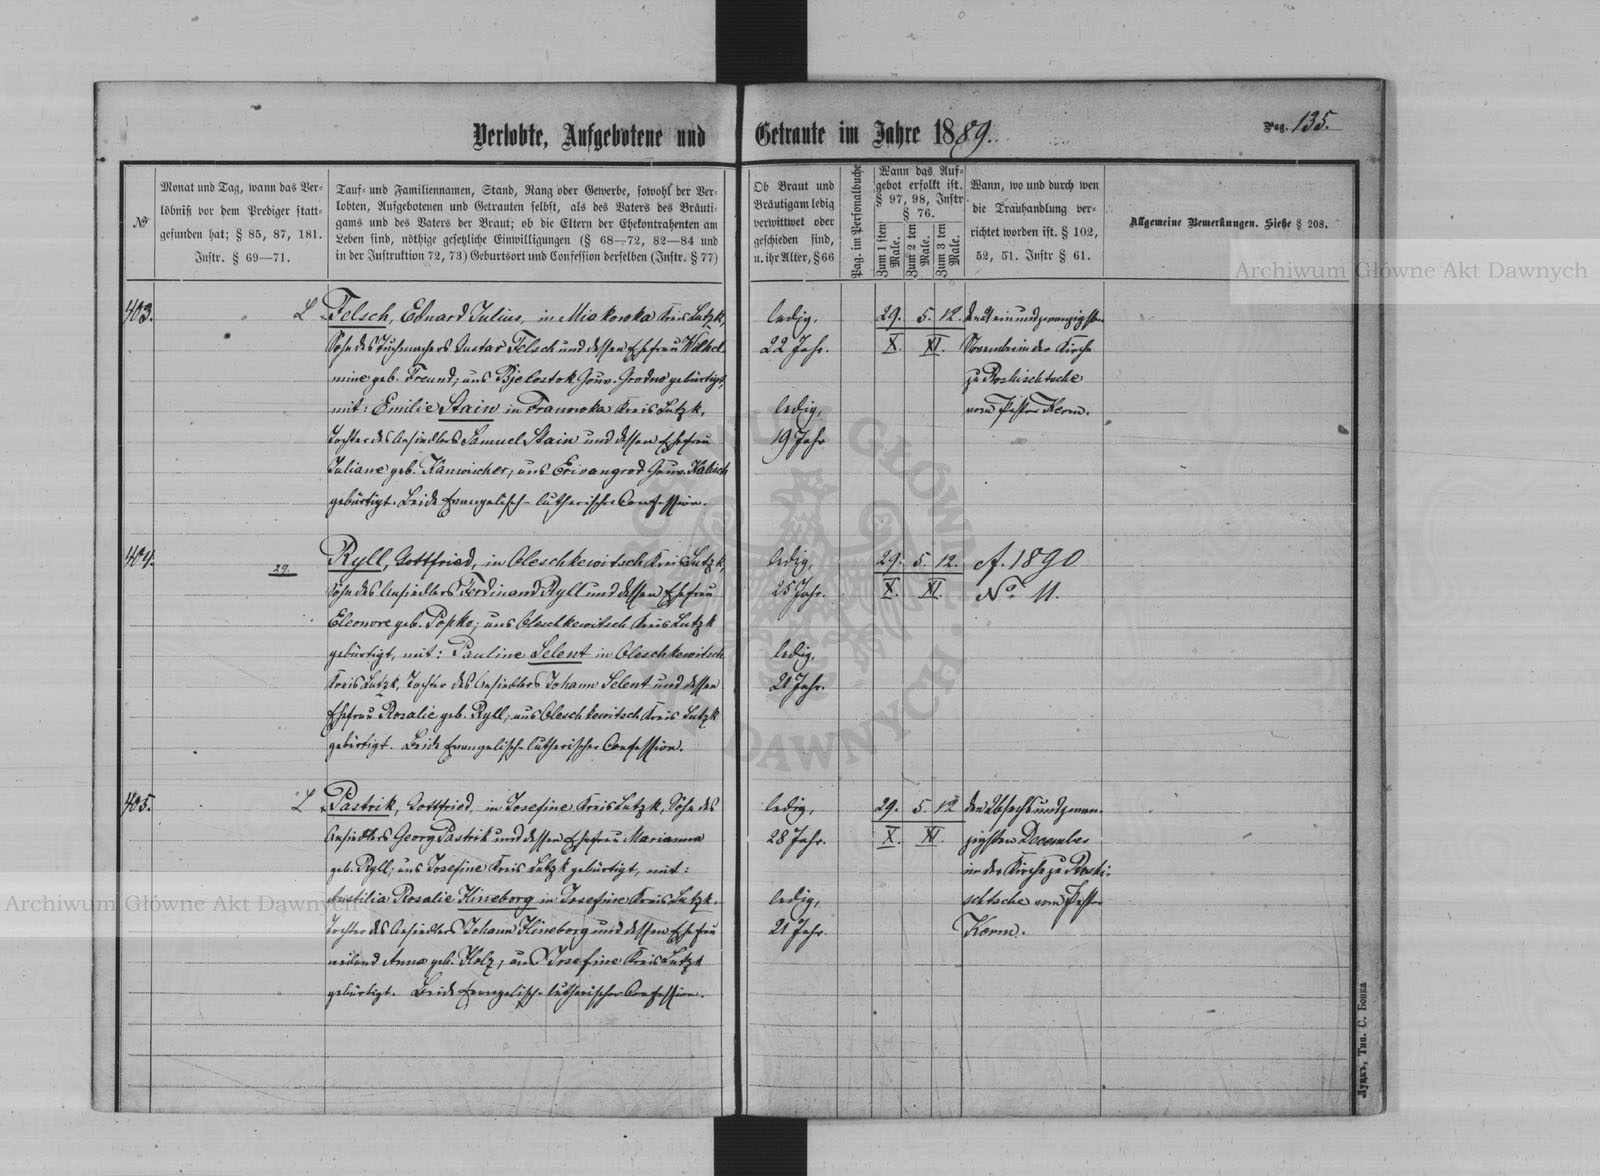 Verlobte, Aufgebotene und Getraute im Jahre 1889.
Pag. 135.
№
Monat und Tag, wann das Ver-
löbniß vor dem Prediger statt-
gefunden hat; § 85, 87, 181.
Instr. § 69—71.
Tauf- und Familiennamen, Stand, Rang oder Gewerbe, sowohl der Ver-
lobten, Aufgebotenen und Getrauten selbst, als des Vaters des Bräuti-
gams und des Vaters der Braut; ob die Eltern der Ehekontrahenten am
Leben sind, nöthige gesetzliche Einwilligungen (§ 68—72, 82—84 und
in der Justruktion 72, 73) Geburtsort und Confession derselben (Instr. § 77)
Ob Braut und
Bräutigam ledig
verwittwet oder
geschieden sind,
u. ihr Alter, § 66
Pag. im Personalbuche
Wann das Auf-
gebot erfolkt ist.
§ 97, 98, Instr
§ 76.
Zum 1 sten Male.
Zum 2 ten Male.
Zum 3 ten Male.
Wann, wo und durch wen
die Trauhandlung ver-
richtet worden ist. § 102,
52, 51. Instr § 61.
Allgemeine Bemerkungen. Siehe § 208.
403.
L
Felsch, Eduard Julius, in Miakowka Kreis Lutzk,
Sohn des Tuchmachers Gustav Felsch und dessen Ehefrau Wilhel-
mine geb. Freund; aus Bjelostok Gouv. Grodno gebürtigt,
mit: Emilie Stain in Franuwka Kreis Lutzk,
Tochter des Ansiedlers Samuel Stain und dessen Ehefrau
Juliane geb. Kanwischer, aus Erivangrod Gouv. Kalisch
gebürtigt. Beide Evangelisch-lutherischer Confession.
ledig,
22 Jahr.
ledig,
19 Jahr
29. 5. 12.
X. XI.
den einundzwanzigsten
November in der Kirche
zu Roshischtsche
vom Pastor Kerm.
404.
29.
Ryll, Gottfried, in Oleschkewitsch Kreis Lutzk,
Sohn des Ansiedlers Ferdinand Ryll und dessen Ehefrau
Eleonore geb. Popko; aus Oleschkewitsch Kreis Lutzk
gebürtigt, mit: Pauline Selent in Oleschkewitsch
Kreis Lutzk, Tochter des Ansiedlers Johann Selent und dessen
Ehefrau Rosalie geb. Ryll; aus Oleschkewitsch Kreis Lutzk
gebürtigt. Beide Evangelisch-lutherischer Confession.
ledig,
25 Jahr.
ledig,
21 Jahr.
29. 5. 12.
X. XI.
cf. 1890
No. 11.
405.
L
Pastrik, Gottfried, in Josefine Kreis Lutzk, Sohn des
Ansiedlers Georg Pastrik und dessen Ehefrau Marianna
geb. Ryll; aus Josefine Kreis Lutzk gebürtigt, mit:
Rosalie Hineborg in Josefine Kreis Lutzk.
Tochter des Ansiedlers Johann Hineborg und dessen Ehefrau
weiland Anna geb. Holz; aus Josefine Kreis Lutzk
gebürtigt. Beide Evangelisch-lutherischer Confession.
ledig,
28 Jahr.
ledig,
21 Jahr.
29. 5. 12
X. XI.
den sechsundzwan-
zigsten December
in der Kirche zu Roshi-
schtsche vom Pastor
Kerm.
Archiwum Główne Akt Dawnych
Archiwum Główne Akt Dawnych
Луцкъ, Тип. С. Бонка